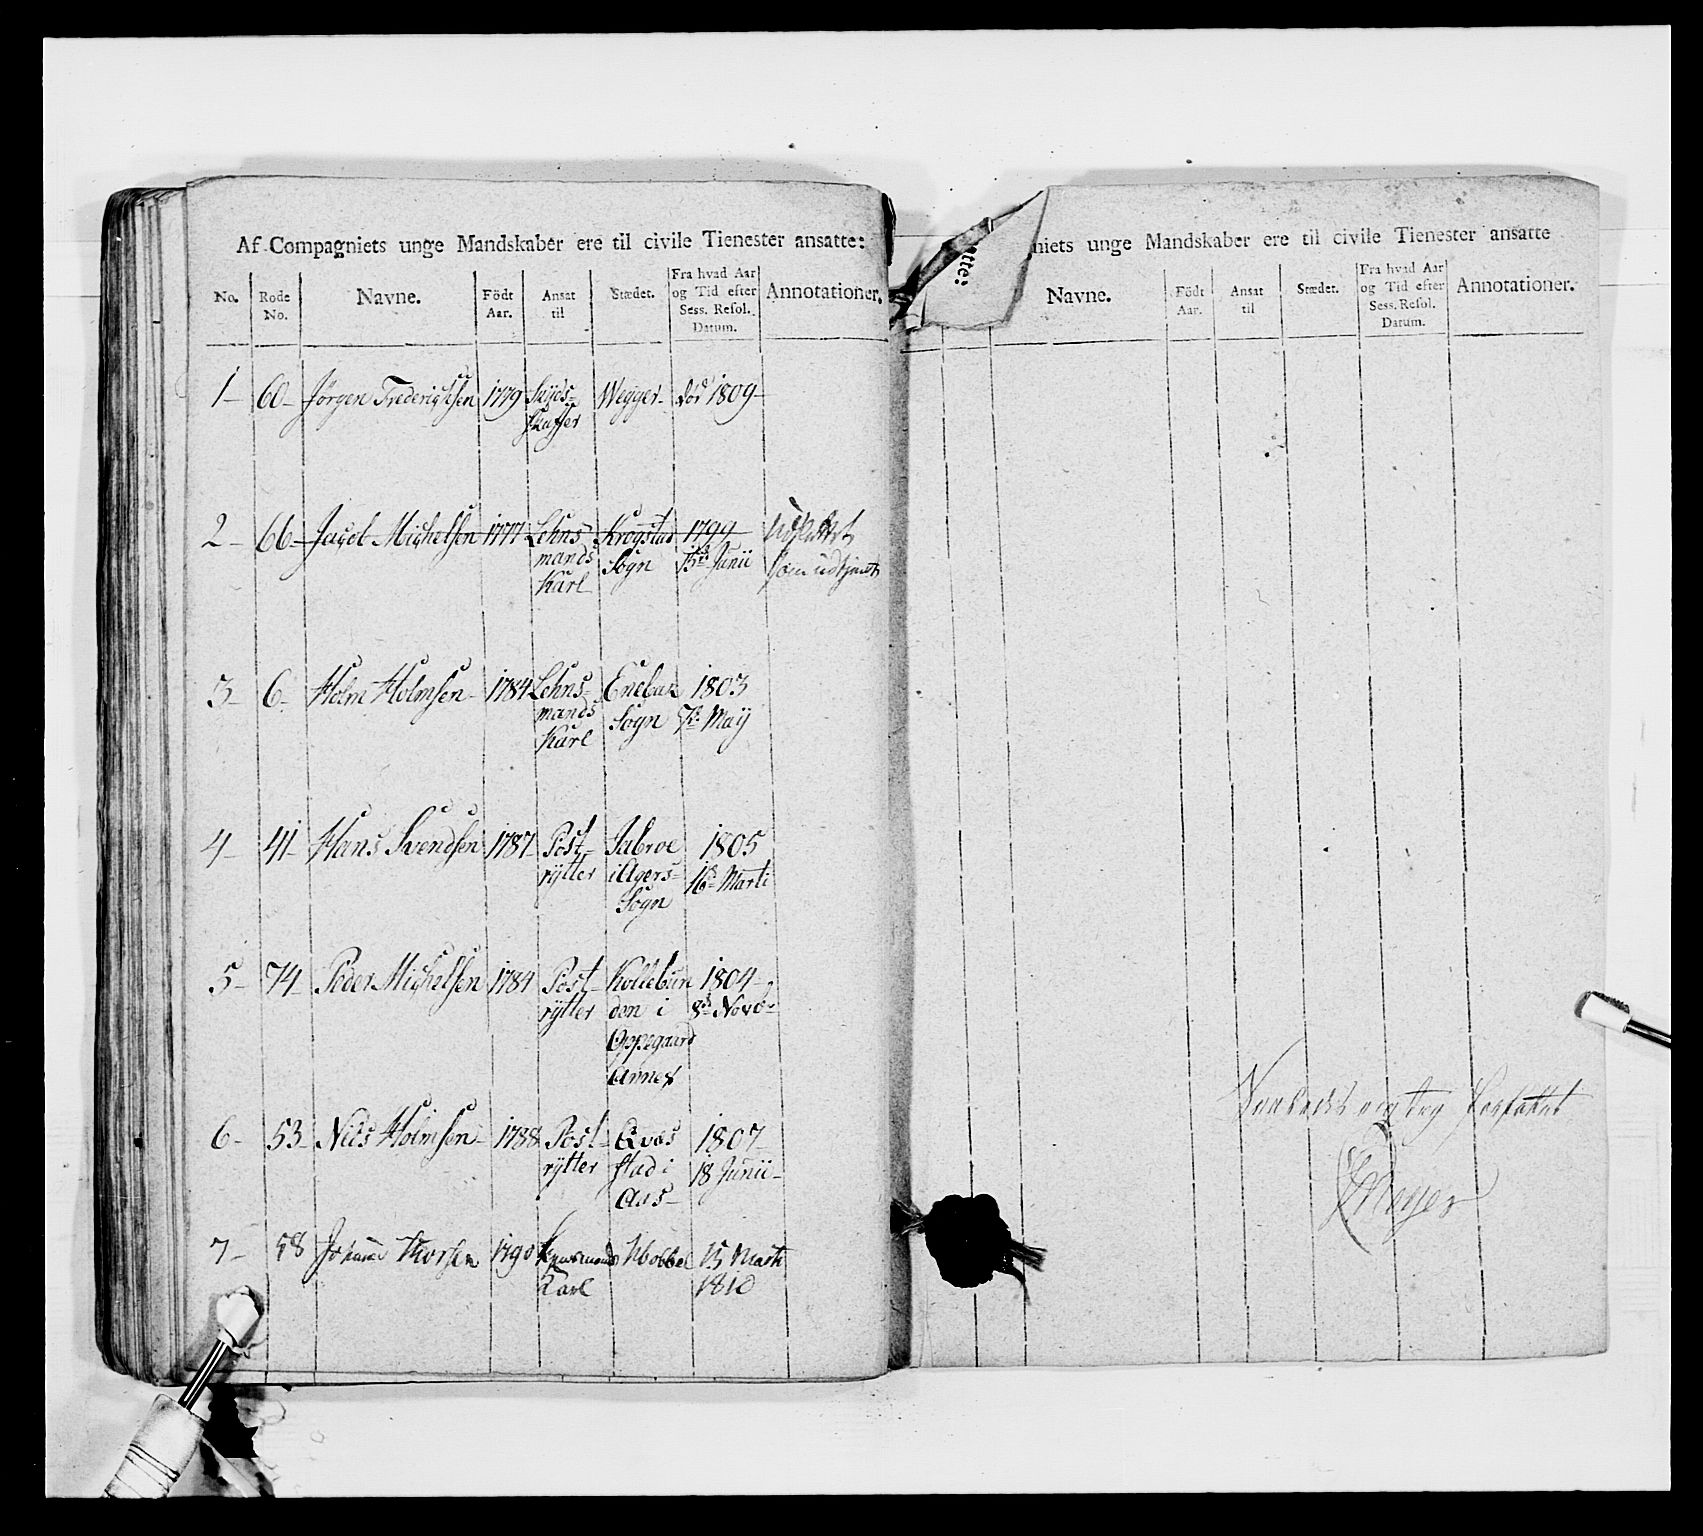 Af Compagniets unge Mandskaber ere til civile Tienester ansatte:
No. Rode No. Navne. Födt Aar. Ansat til Stædet. Fra hvad Aar og Tid efter Sess. Resol. Datum. Annotationer.
1- 60- Jörgen Frederichsen 1779 Skyds- Wegger- död 1809-
skaffer
2- 66- Michelsen 1777 Lehns Krogstad 1799
mands Sogn 15de Junii som udtjent
Karl
3- 6- Holm Holmsen- 1784 Lehns- Enebak 1803
mands Sogn 7de Maÿ
Karl
4- 41- Hans Svendsen 1787- Post- Jabroe 1805
rÿtter i Agers- 16de Marti
Sogn
5- 74- Peder Michelsen 1784 Post- Kollebun 1804-
rÿtter den i 8de Novb
Oppegaard
Annex
6- 53- Niels Holmsen- 1788 Post- Qvæs 1807-
rÿtter stad i 18 Junii-
Aas-
7- 58 Thorsen 1790 Hobbel 15 Marti
Karl 1810
atte:
niets unge Mandskaber ere til civile Tienester ansatte
Navne. Födt Aar. Ansat til Stædet. Fra hvad Aar og Tid efter Sess. Resol. Datum. Annotationer.
rigtig forfattet
Meyer